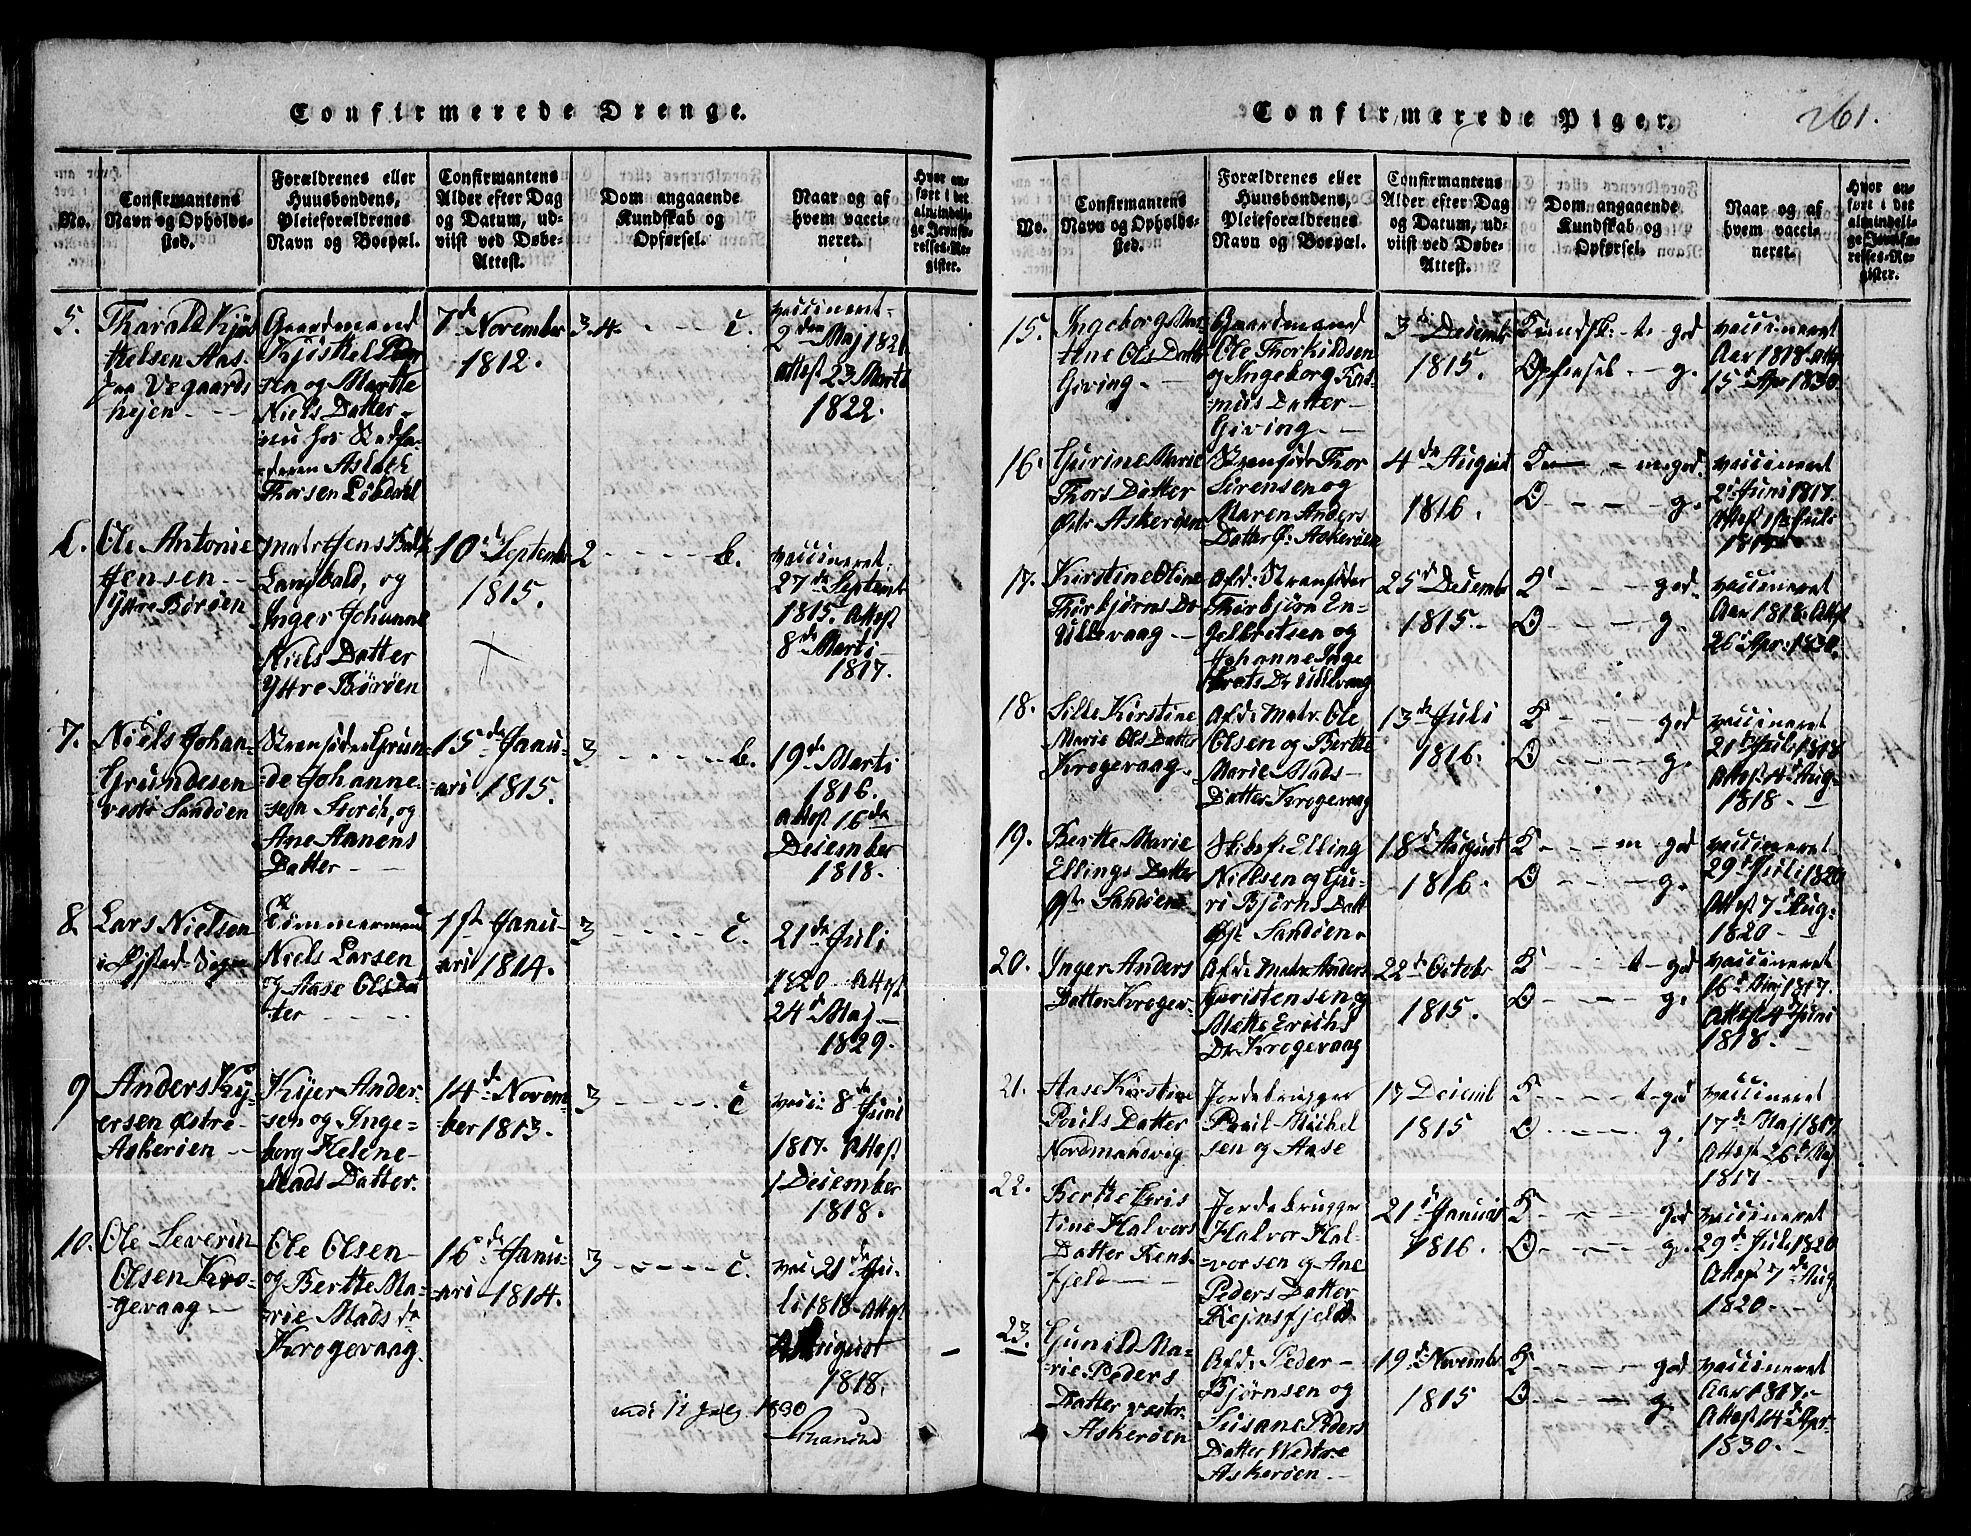 Confirmerede Drenge.
No.
Confirmantens
Navn og Opholds-
sted.
Forældrenes eller
Huusbondens,
Pleieforældrenes
Navn og Boepæl.
Confirmantens
Alder efter Dag
og Datum, ud-
viist ved Døbe-
Attest.
Dom angaaende
Kundskab og
Opførsel.
Naar og af
hvem vacci-
neret.
Hvor an-
ført i det
almindeli-
ge Jevnfø-
relses-Re-
gister.
5.
Tharald
kelsen Aas-
Vegaards
hejen
Gaardmand
Kjøstel
sen og Marthe
Niels Datter
nu hos
Aslach
Thorsen Løbdahl
7de November
1812.
3-4 - - - - c.
vaccineret
2den Maj 1821
Attest 23 Marti
1822.
Ole Antonie
Jensen
Yttre Børøen
Matr. Jens
Langbald, og
Inger Johanne
Niels Datter
Yttre Børøen
10de Septembr
1815.
2 - - - - b.
vaccineret
27de Septemb
1815. Attest
8de Marti
1817.
7.
Niels Johan
Grundesen
vestr Sandøen
Strandsidder Grun-
de Johanne-
sen Storch, og
Ane Aanens
Datter
15de Janu-
ari 1815.
3 - - - - b.
19de Marti
1816.
Attest 16de
Deicember
1818.
8.
Lars Nielsen
i Øjestad Sogn
Tømmermand
Niels Larsen
og Aase Ols Dat
ter
1ste Janu-
ari 1814.
3 - - - - c.
21de Juli
1820 Attest
24d Maj
1829.
9
Anders Ky-
ersen Østre
Askerøen
Kyer Ander-
sen og Inge-
borg Helene
Mads Datter.
14de Novem-
ber 1813.
3 - - - - c
vacci: 8de Juni
1817. Attest
1 Deicember
1818.
10.
Ole Severin
Olsen Kro-
gevaag
Ole Olsen
og Berthe Ma-
rie Mads dr
Krogevaag.
16de Janu-
ari 1814.
3 - - - - c.
vac: 21de Ju-
li 1818 Attest
August
1818.
1830
Confirmerede Piger.
261.
No.
Confirmantens
Navn og Opholds-
sted.
Forældrenes eller
Huusbondens,
Pleieforældrenes
Navn og Boepæl.
Confirmantens
Alder efter Dag
og Datum, ud-
viist ved Døbe-
Attest.
Dom angaaende
Kundskab og
Opførsel.
Naar og af
hvem vacci-
neret.
Hvor an-
ført i det
almindeli-
ge Jevnfø-
relses-Re-
gister.
15.
Ingeborg Mar
tine Ols Datt
Giving.
Gaardmand
Ole Thorkildsen
og Ingeborg Ras-
mus Datter
Giving.
3di Desemb
1815.
Kundsk: t- god
Opførsel - - g.
vaccineret
Aar 1818. Att:
15d Apr 1830.
16.
Gurine Marie
Thors Datter
Østr Askerøen
Strandsidder Thor
Sørensen og
Maren Anders
Datter Ø: Askerøen
4de August
1816.
K - m-god
O - - - g.
vaccineret
2d Juni 1817.
Attest 1ste Juli
17.
Kirstine Oline
Thorbjørns Dr
Ullevaag
Afd: Strandsidder
Thorbjørn En-
gelbretsen og
Johanne Inge
brets Dr Ullevaag
25d Desemb
1815.
K - - - god
O - - - g.
vaccineret
Aar 1818. Attest
26d Apr: 1830.
18.
Sille Kirstine
Marie Ols Datter
Krogevaag.
Afd: Matr. Ole
Olsen og Berthe
Marie Mads
Datter Krogevaag
13de Juli
1816.
K - - - god
O - - - g.
vaccineret
21d Juli 1818
Attest 14d Aug-
1818.
19.
Berthe Marie
Ellings Datter
Østr Sandøen
Skibsf. Elling
Nielsen og Gu-
ri Bjørns Datt
Øst Sandøen.
18d August
1816.
K - - - m god
O - - - g.
vaccineret
29d Juli 1820
Attest 7d Aug:
1820
20.
Inger Anders
Datter Kroger-
Afd: Matr. Anders
Christensen og
Mette Erichs
Dr Krogevaag
22d Octobr
1815.
K - - - t- god
O - - - g.
vaccineret
16d Maj 1817.
Attest 4d Juni
1818.
21.
Aase Kirstine
Pouls Datter
Nordmandvig
Jordebrugger
Poul Michel
sen og Aase
17 Deicemb
1815
K - - - t- god
O - - - g.
vaccineret
17de Maj 1817
Attest 26d Maj
1817.
22.
Berthe Chris
tine Halvors
Datter Rens
fjeld
Jordebrugger
Halvor Hal-
vorsen og Ane
Peders Datter
Rejnsfjeld.
21d Januar
1816.
K - - - god
O - - - g.
vaccineret
29d Juli 1820
Attest 7de Aug
1820.
23.
Gunild Ma-
rie Peders
Datter vestr.
Askerøen
Afd: Peder
Bjørnsen og
Susane Peders
Datter Westre
Askerøen.
19d Novemb
1815
K - - - god
O - - - g.
vaccineret
Aar 1817.
Attest 14d Apr
1830.